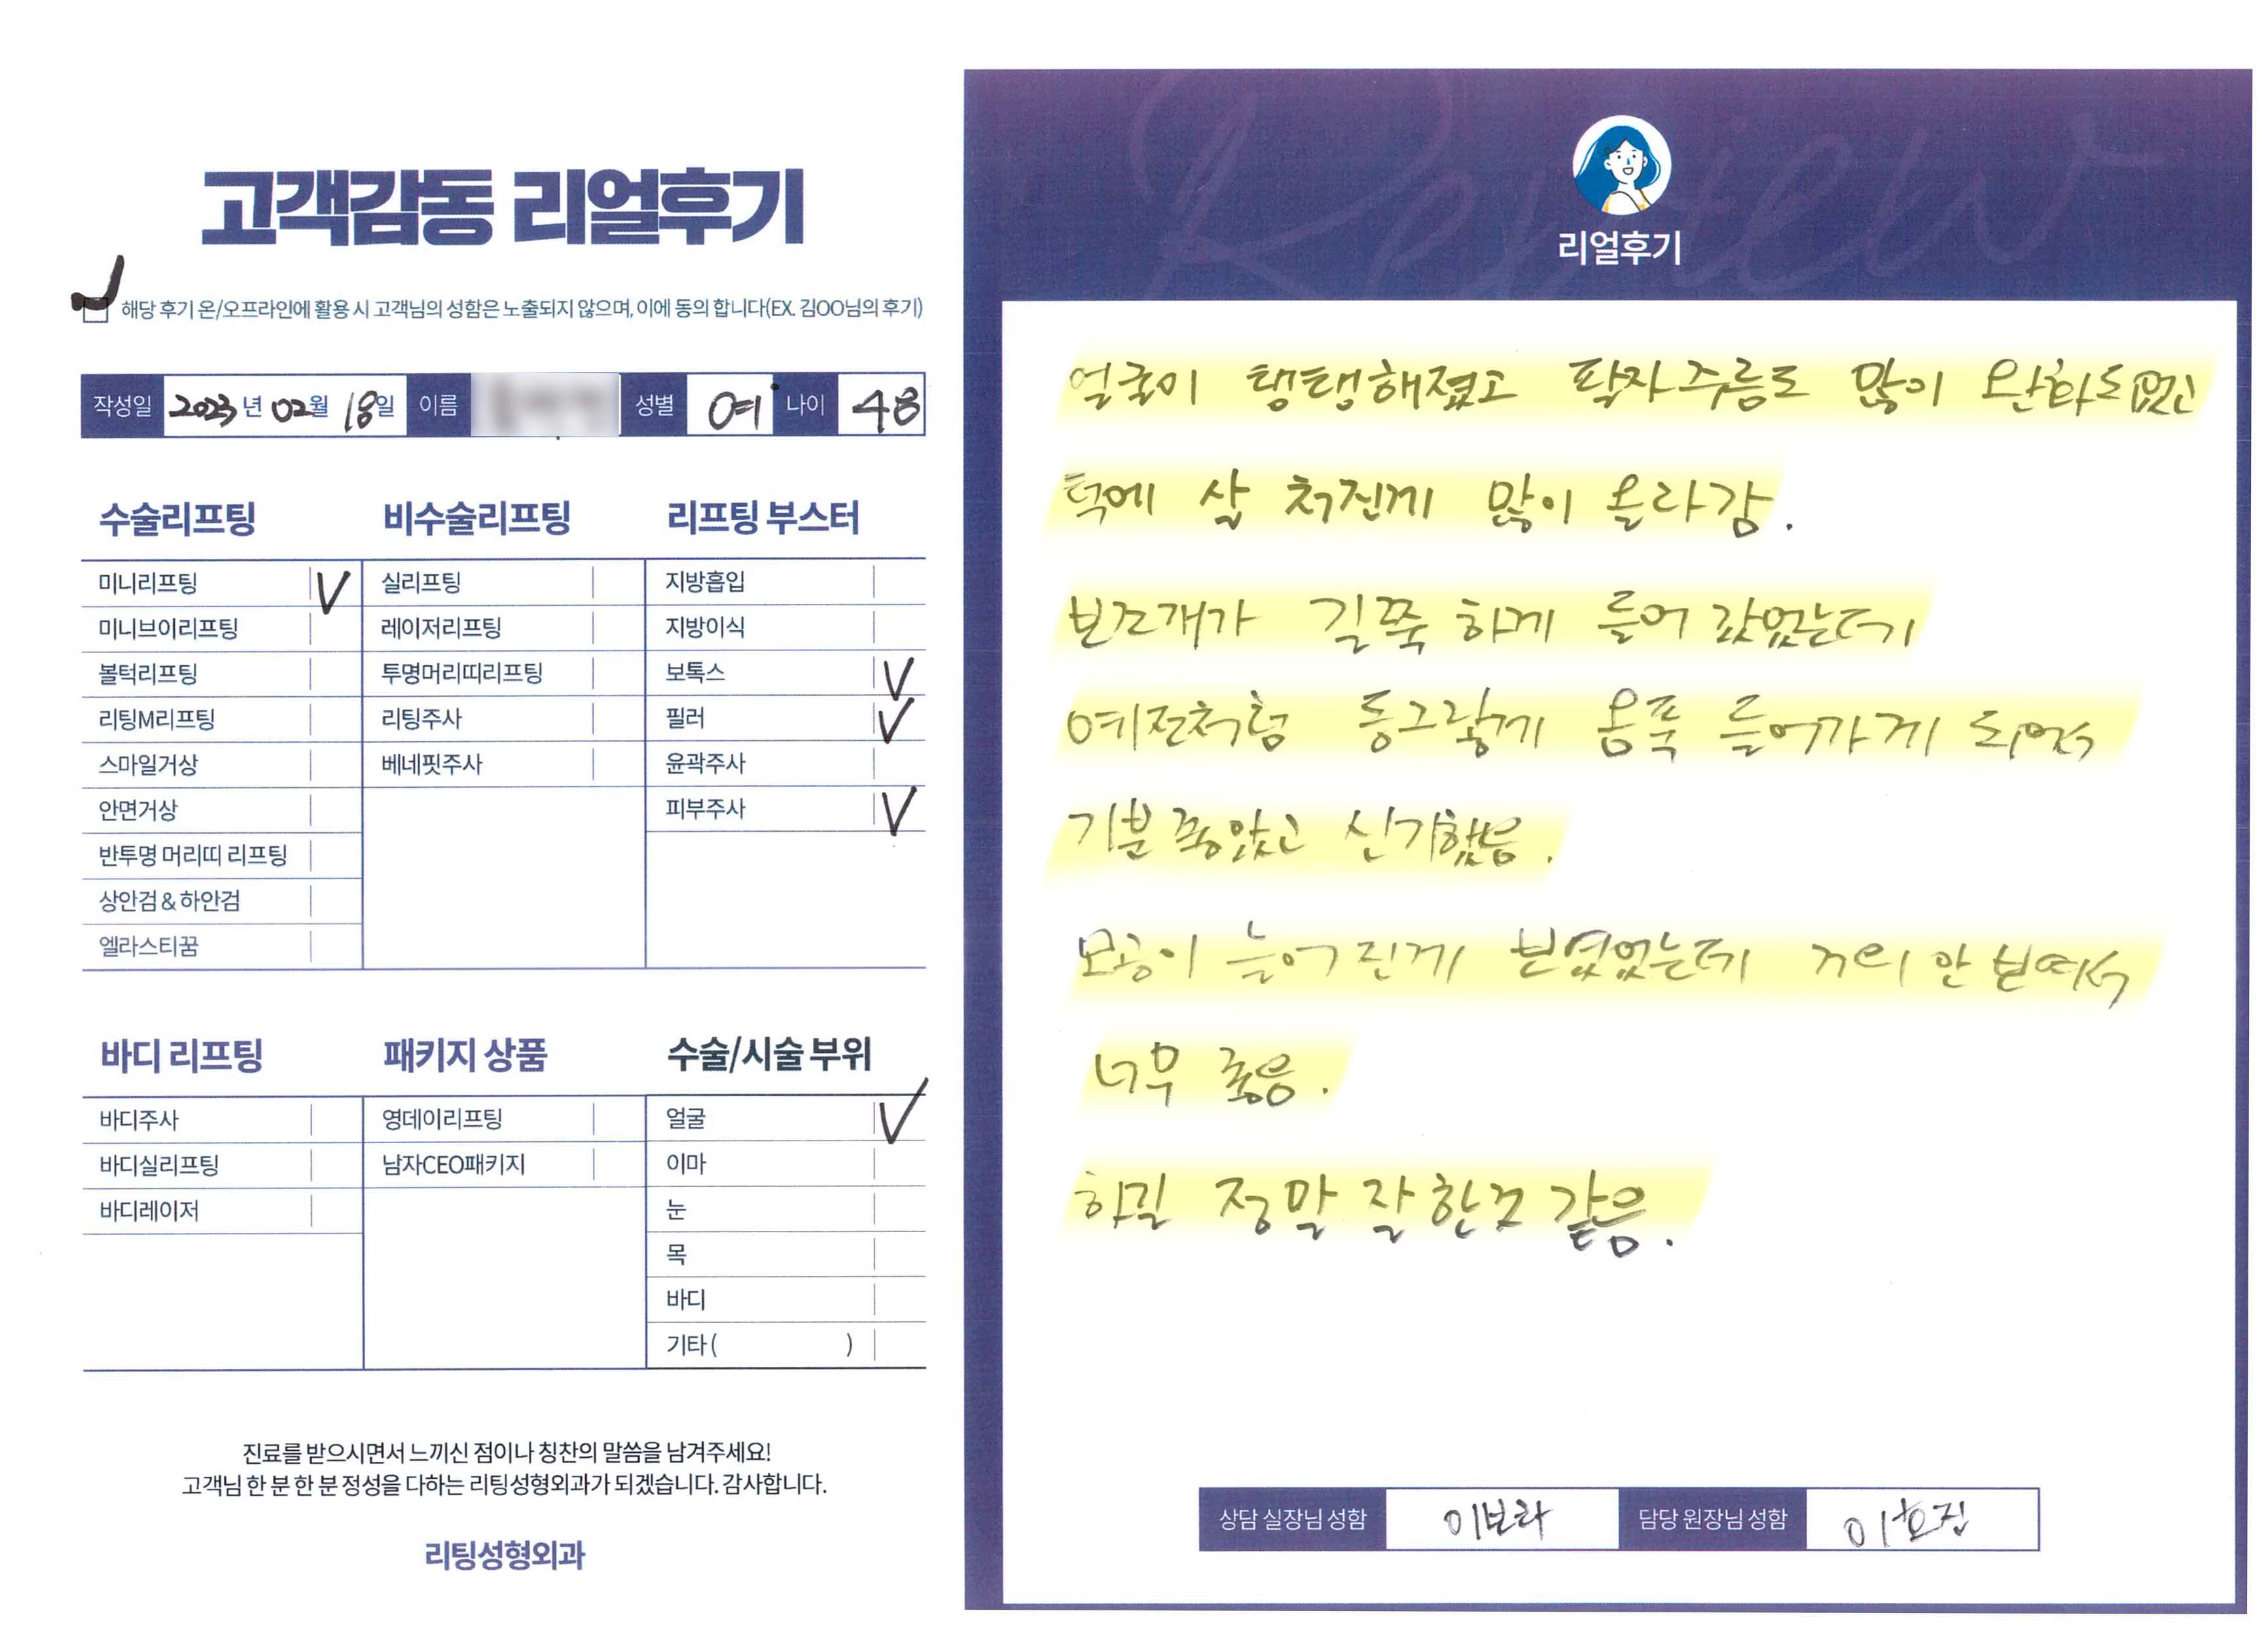 고객감동 리얼후기
해당 후기 온/오프라인에 활용 시 고객님의 성함은 노출되지 않으며, 이에 동의 합니다(EX. 김OO님의 후기)
작성일 2023년 02월 18일 이름 성별 여 나이 48
수술리프팅
미니리프팅 V
미니브이리프팅
볼턱리프팅
리팅M리프팅
스마일거상
안면거상
반투명 머리띠 리프팅
상안검 & 하안검
엘라스티꿈
비수술리프팅
실리프팅
레이저리프팅
투명머리띠리프팅
리팅주사
베네핏주사
리프팅 부스터
지방흡입
지방이식
보톡스 V
필러 V
윤곽주사
피부주사 V
바디 리프팅
바디주사
바디실리프팅
바디레이저
패키지 상품
영데이리프팅
남자CEO패키지
수술/시술 부위
얼굴 V
이마
눈
목
바디
기타 ( )
진료를 받으시면서 느끼신 점이나 칭찬의 말씀을 남겨주세요!
고객님 한 분 한 분 정성을 다하는 리팅성형외과가 되겠습니다. 감사합니다.
리팅성형외과
Review
리얼후기
얼굴이 탱탱해졌고 팔자주름도 많이 완화되었고
턱에 살 처진게 많이 올라감.
보조개가 길쭉 하게 들어 갔었는데
예전처럼 동그랗게 옴푹 들어가게 되어서
기분 좋았고 신기했음.
모공이 늘어진게 보였었는데 거의 안 보여서
너무 좋음.
하길 정말 잘 한것 같음.
상담 실장님 성함 이보라 담당 원장님 성함